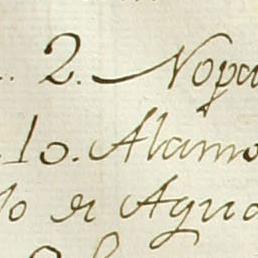 2. Nopa
10. Alamo
lo de Agua